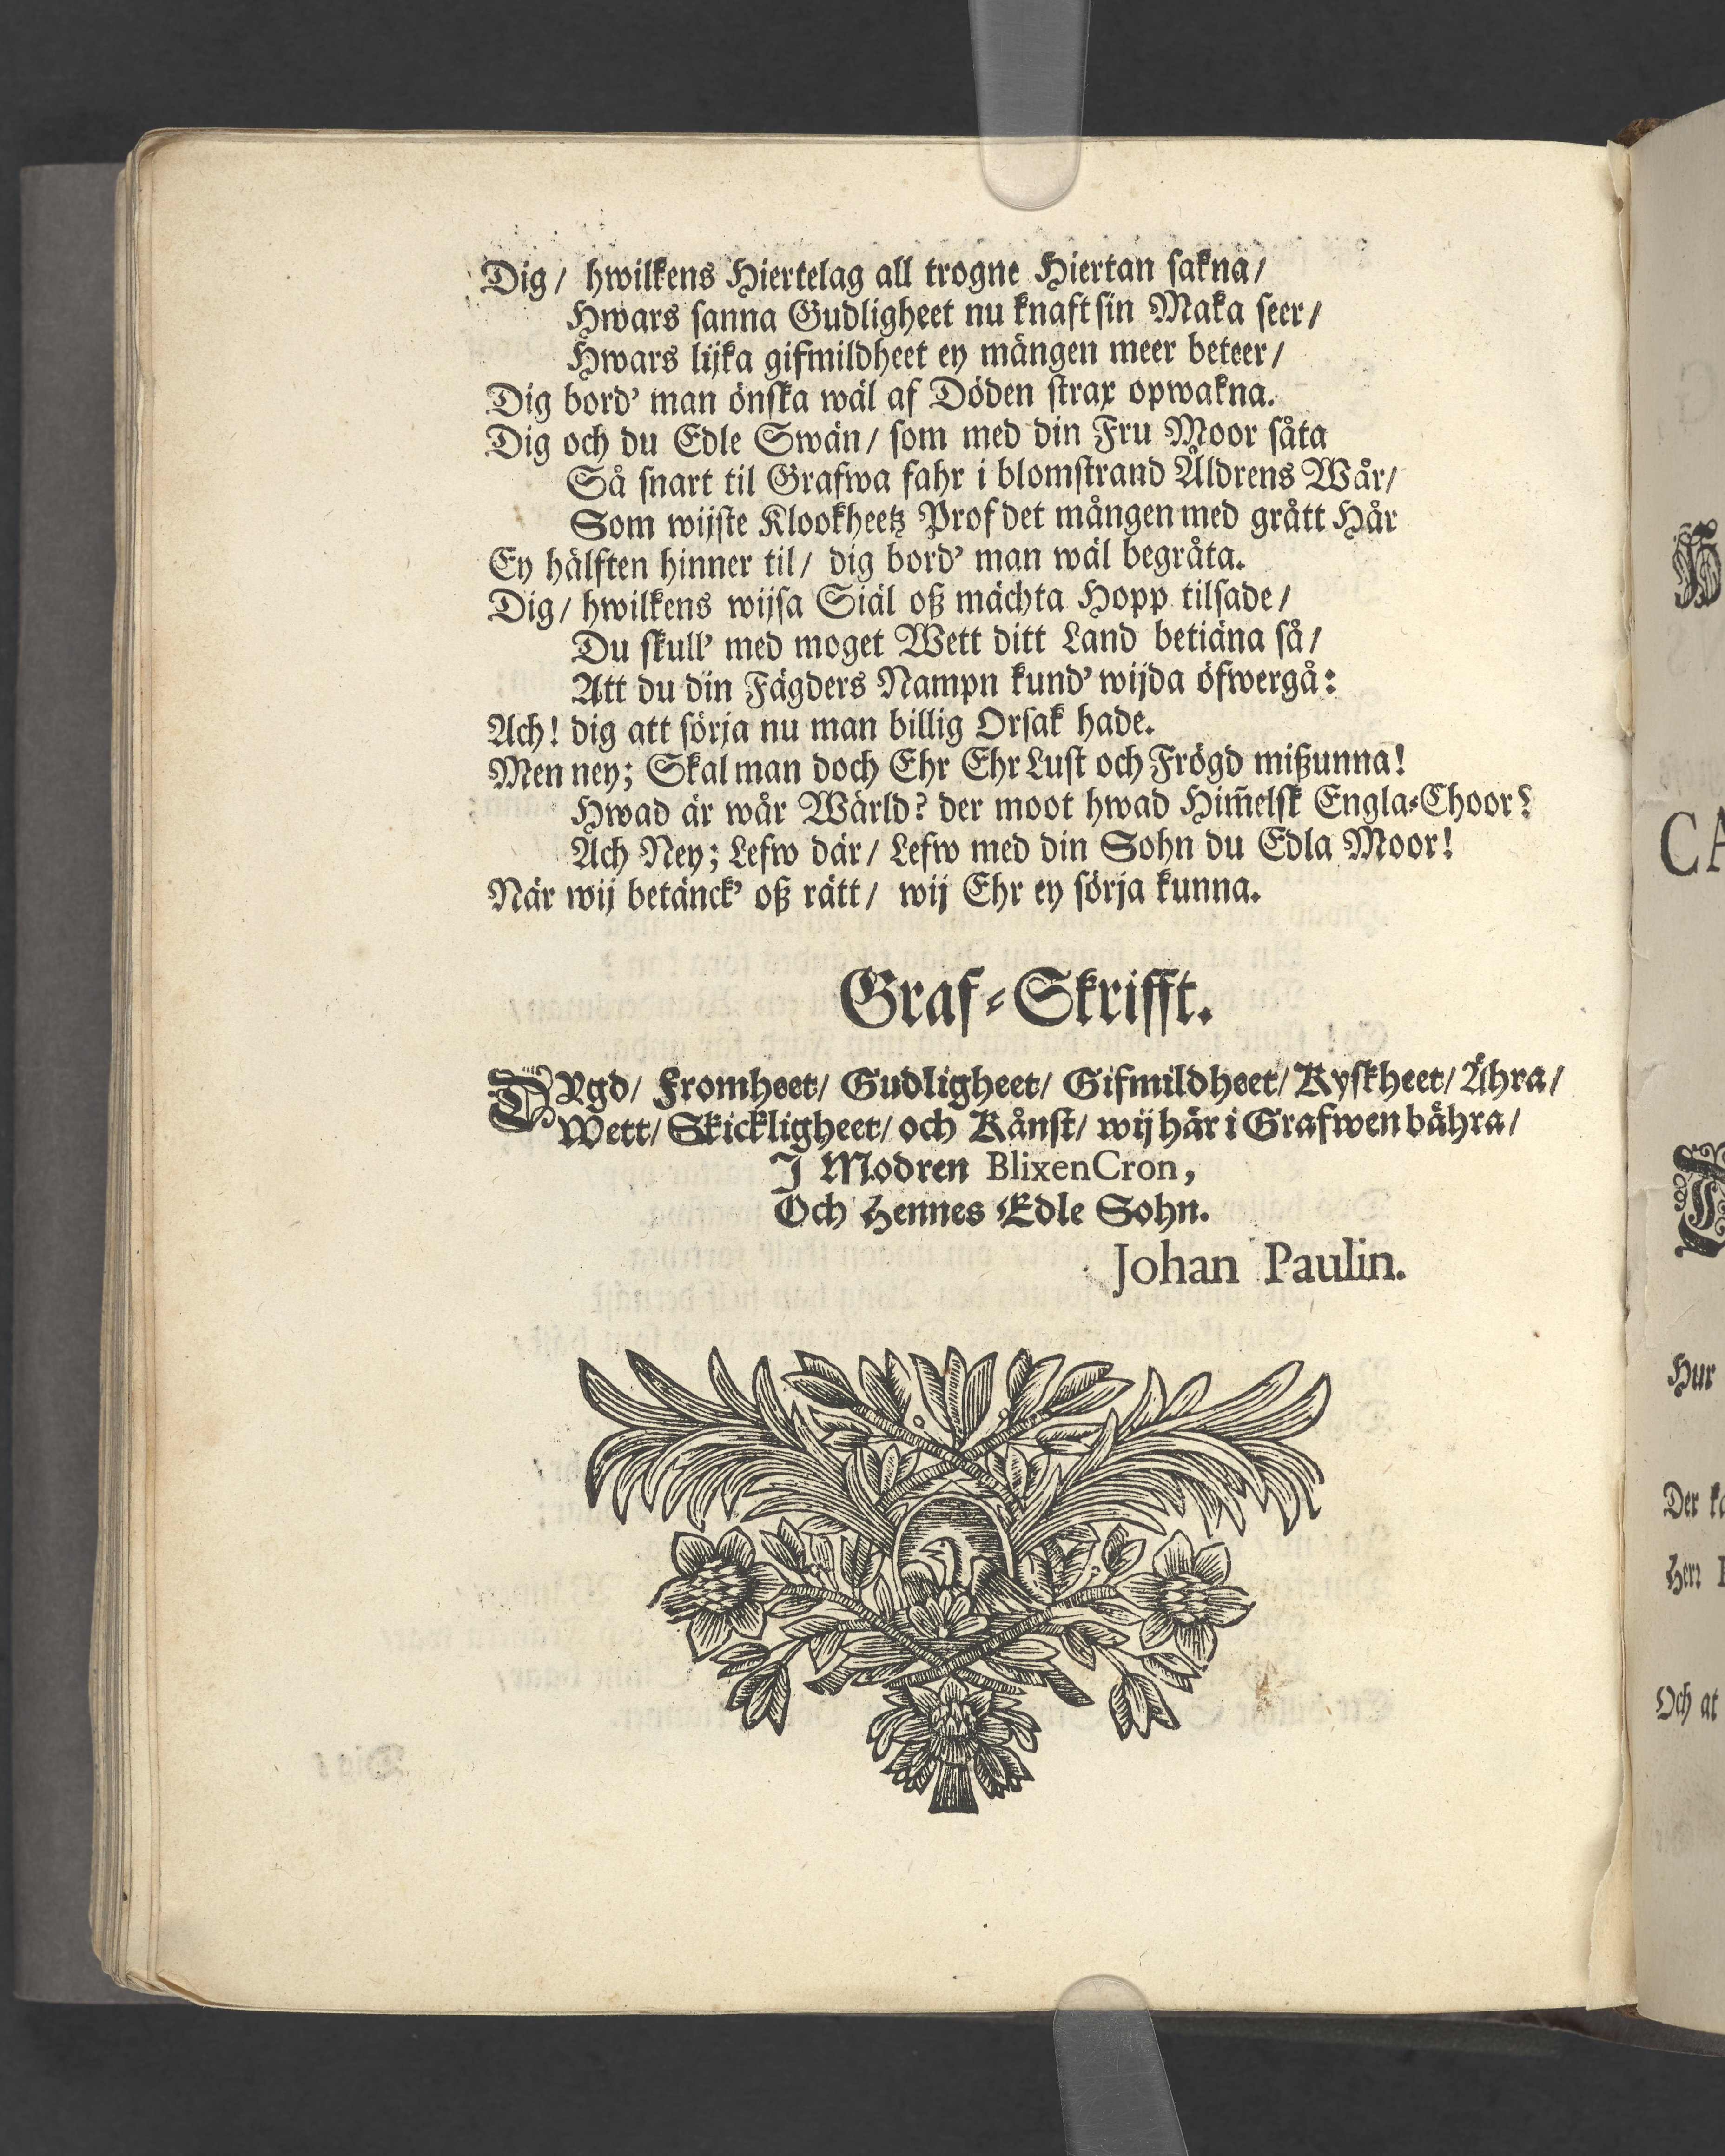 Dig/ hwilkens Hiertelag all trogne Hiertan sakna/
Hwars sanna Gudligheet nu knaft sin Maka seer/
Hwars lijka gifmildheet ey mången meer beteer/
Dig bord' man önska wäl af Döden strax opwakna.
Dig och du Edle Swän/ som med din Fru Moor såta
Så snart til Grafwa fahr i blomstrand Åldrens Wår/
Som wijste Klookheetz Prof det mången med grått Hår
Ey hälften hinner til/ dig bord' man wäl begråta.
Dig/ hwilkens wijsa Siäl oß mächta Hopp tilsade/
Du skull' med moget Wett ditt Land betiäna så/
Att du din Fägders Nampn kund' wijda öfwergå:
Ach! dig att sörja nu man billig Orsak hade.
Men ney; Skal man doch Ehr Ehr Lust och Frögd mißunna!
Hwad är wår Wärld? der moot hwad Him̃elsk Engla-Choor?
Ach Ney; Lefw där/ Lefw med din Sohn du Edla Moor!
När wij betänck' oß rätt/ wij Ehr ey sörja kunna.
Graf-Skrifft.
DYgd/ Fromheet/ Gudligheet/ Gifmildheet/ Kyskheet/ Ähra/
Wett/ Skickligheet/ och Kånst/ wij här i Grafwen bähra/
J Modren BlixenCron,
Och Hennes Edle Sohn.
Johan Paulin.
CA
Hur
Der
Herr
Och at